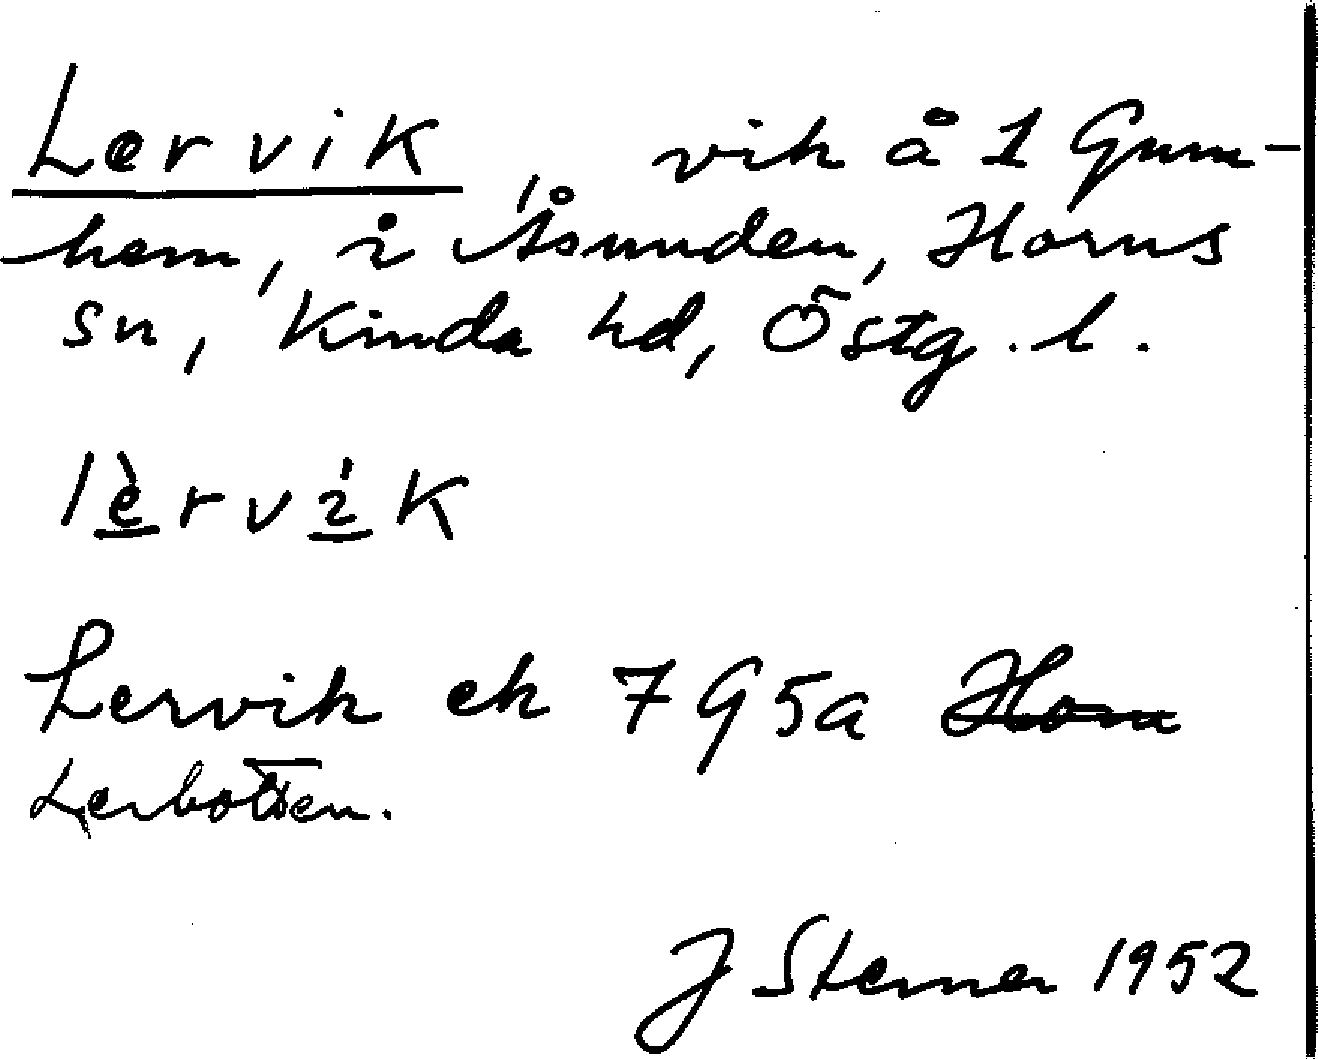 Lervik, vik å 1 Gum-
hem, i Åsunden, Horns
sn, Kinda hd, Östg. l.
lèrvík
Lervik ek 7 G 5a Horn
Lerbotten.
J Sterner 1952